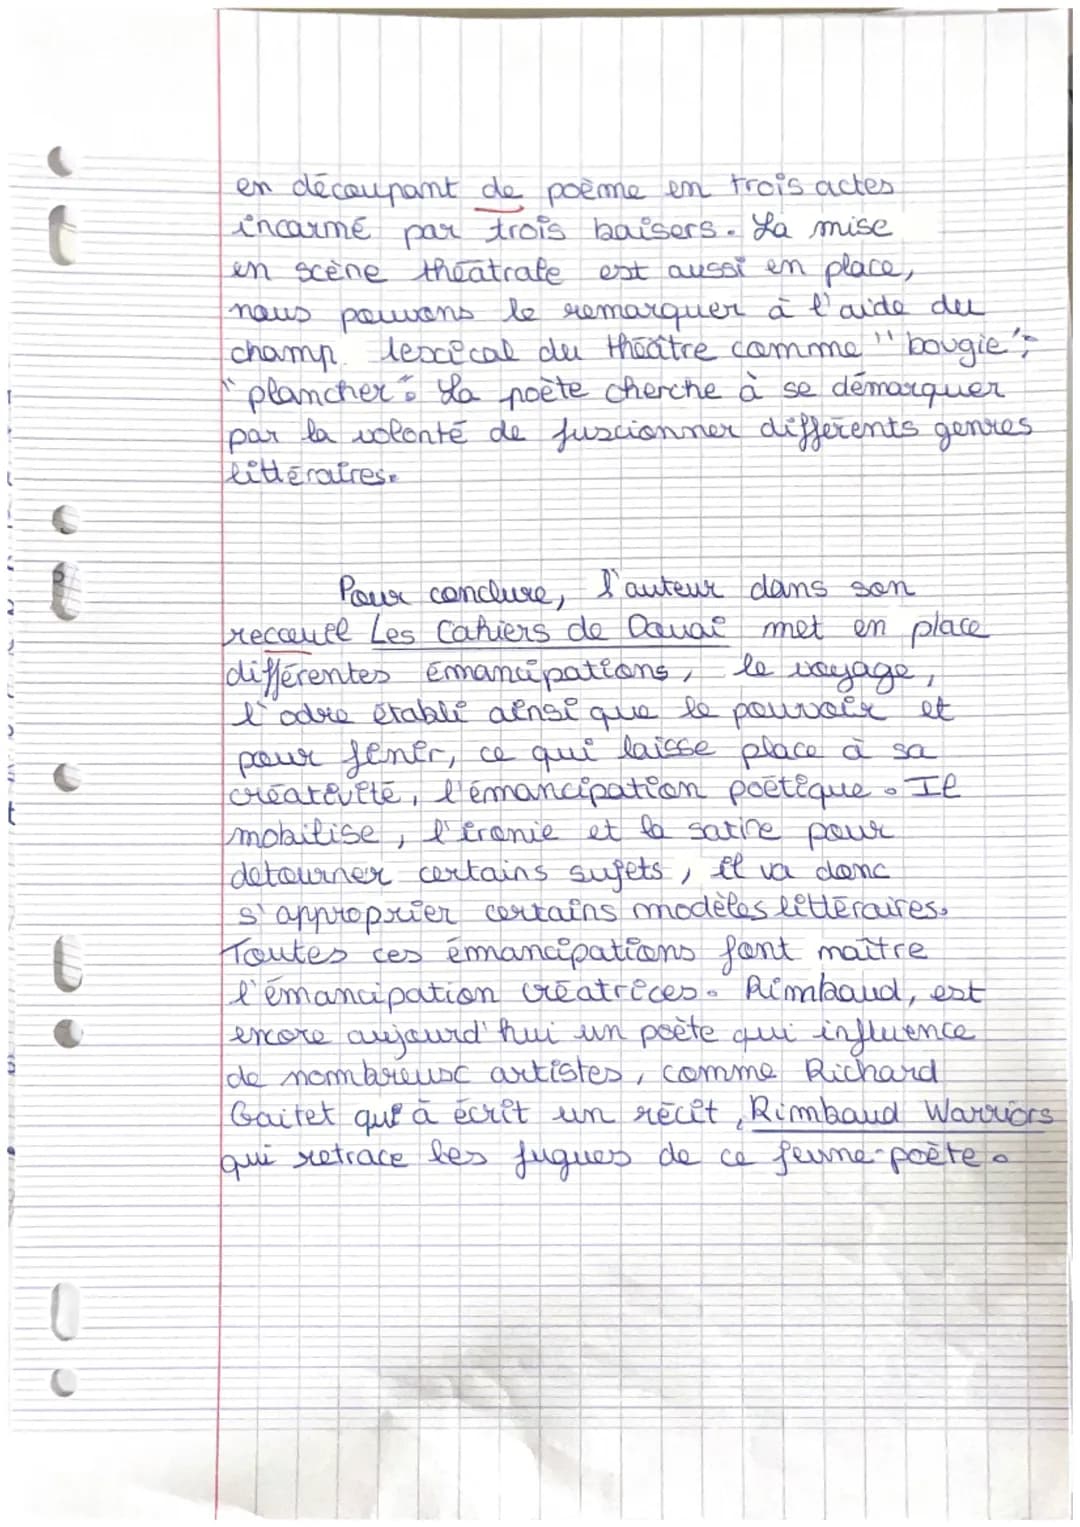 en découpant de poème en trois actes
incarné par trois baisers. La mise
en scène théatrale est aussi en place,
nous pouvons le remarquer à l'aide du
champ lexical du théâtre comme "bougie";
"plancher". La poète cherche à se démarquer
par la volonté de fuscionner différents genres
littéraires.
Pour conclure, l'auteur dans son
recceuel Les Cahiers de Douai met en place
différentes émancipations, le voyage,
l'odre établi ainsi que le pouvoir et
pour fener, ce qui laisse place à sa
créativité, l'émancipation poétique. Il
mobilise, l'ironie et la satire pour
detourner certains sujets, il va donc
s'approprier certains modèles littéraires.
Toutes ces émancipations font maître
l'émancipation créatrices. Rimbaud, est
encore aujourd'hui un poète qui influence
de nombreusc artistes, comme Richard
Gaitet qui à écrit un récit, Rimbaud Warriors
qui retrace les fugues de ce jeune-poète.